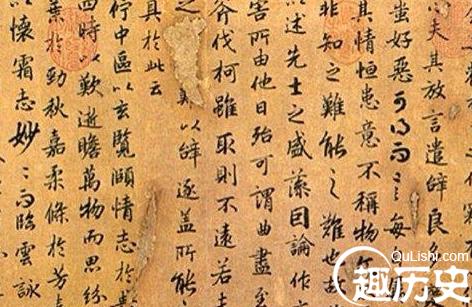 心夫其放言遣辭良
蚩好惡可得而言每
其情恒患意不稱物
非知之難能之難也故
以述先士之盛藻因論作
害所由他日殆可謂曲盡
斧伐柯雖取則不遠若
之難以辭逐蓋所能
具於此云
佇中區以玄覽頤情志於
四時以歎逝瞻萬物而思紛
葉於勁秋嘉柔條於芳
以懷霜志眇眇而臨雲詠
QuLiShi.com
趣历史